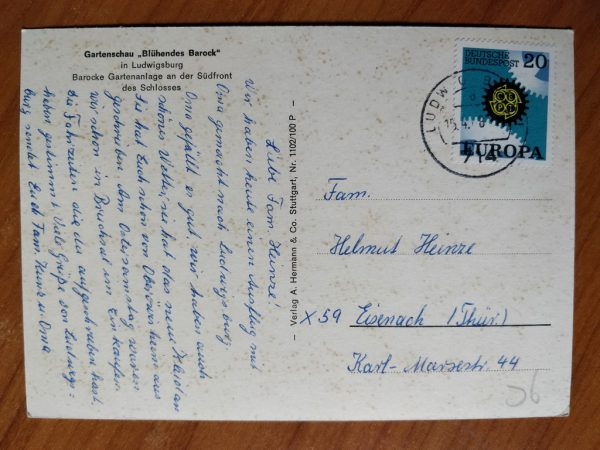 Gartenschau „Blühendes Barock"
in Ludwigsburg
Barocke Gartenanlage an der Südfront
des Schlosses
Liebe Fam. Heinze!
Wir haben heute einen Ausflug mit
Oma gemacht nach Ludwigsburg.
Oma gefällt es gut, wir haben auch
schönes Wetter, sie hat das neue Kleid an
Sie hat Euch schon von Oberöwisheim aus
geschrieben. Am Ostersamstag waren
wir schon in Bruchsal um Einkaufen
Die Fahrzeiten die du aufgeschrieben hast
haben gestimmt. Viele Grüße von Ludwigs-
burg sendet Euch Fam. u. Oma
– Verlag A. Hermann & Co. Stuttgart, Nr. 1102/100 P –
DEUTSCHE
BUNDESPOST
20
EUROPA
LUDWIGSB
714
Fam.
Helmut Heinze
X 59 Eisenach (Thür.)
Karl-Marxstr. 44
36